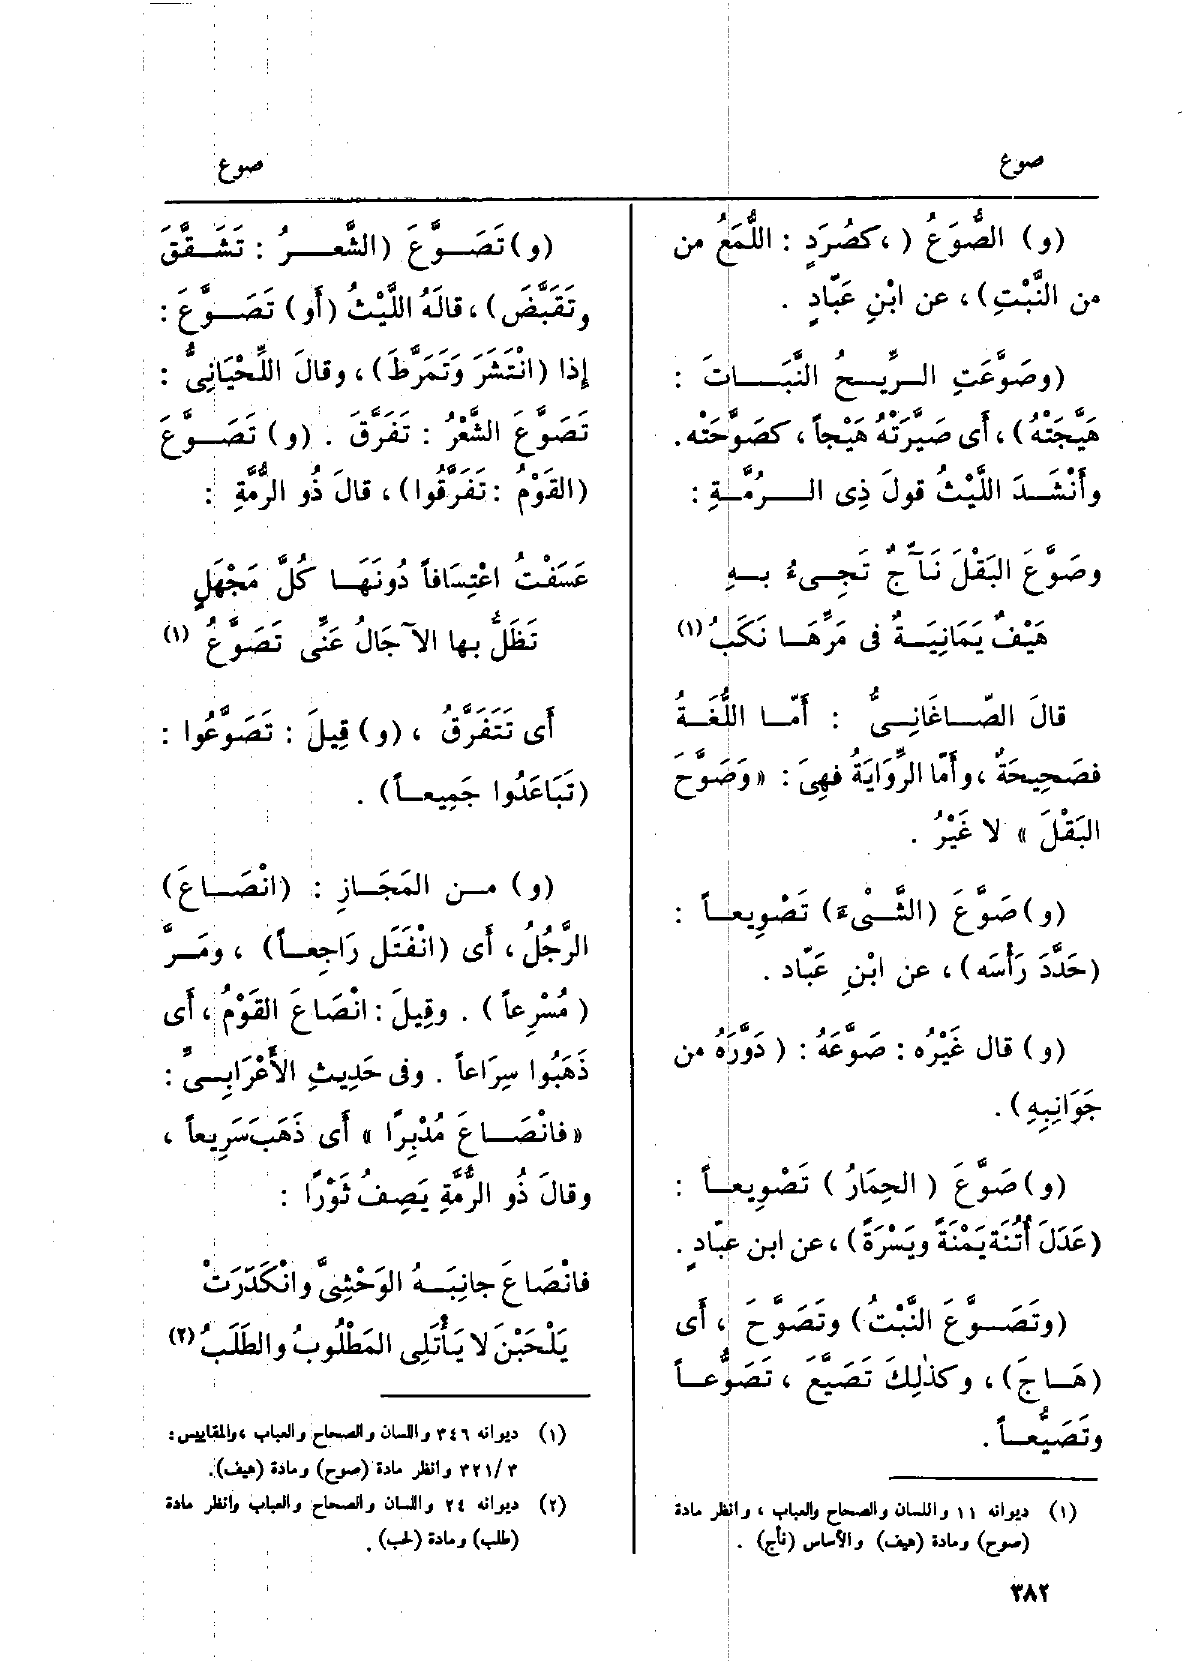 صوع
صوع
(و) الصُّوَعُ (، كصُرَدٍ : اللُّمَعُ من
من النَّبْتِ) ، عن ابْنِ عَبّادٍ .
(وصَوَّعَتِ الرِّيحُ النَّبَاتَ :
هَيَّجَتْهُ) ، أَى صَيَّرَتْهُ هَيْجاً ، كصَوَّحَتْه.
وأَنْشَدَ اللَّيْثُ قولَ ذِى الرُّمَّةِ :
وصَوَّعَ البَقْلَ نَآّجٌ تَجِىءُ بهِ
هَيْفٌ يَمَانِيَةٌ فى مَرِّهَا نَكَبُ (١)
قالَ الصّاغَانِىُّ : أَمّا اللُّغَةُ
فصَحِيحَةٌ ، وأَمّا الرِّوَايَةُ فهِىَ : « وَصَوَّحَ
البَقْلَ » لا غَيْرُ .
(و) صَوَّعَ (الشَّىْءَ) تَصْوِيعاً :
(حَدَّدَ رَأْسَه) ، عن ابْنِ عَبّاد .
(و) قال غَيْرُه : صَوَّعَهُ : ( دَوَّرَهُ من
جَوَانِبِهِ) .
(و) صَوَّعَ ( الحِمَارُ ) تَصْوِيعاً :
(عَدَلَ أُتُنَهُ يَمْنَةً ويَسْرَةً) ، عن ابن عبّادٍ .
(وتَصَوَّعَ النَّبْتُ) وتَصَوَّحَ ، أَى
(هَاجَ) ، وكذٰلِكَ تَصَيَّعَ ، تَصَوُّعاً
وتَصَيُّعاً .
(١) ديوانه ١١ واللسان والصحاح والعباب ، وانظر مادة
(صوح) ومادة (هيف) والأساس (نأج) .
٣٨٢
(و) تَصَوَّعَ (الشَّعرُ : تَشَقَّقَ
وتَقَبَّضَ) ، قالَهُ اللَّيْثُ (أَو) تَصَوَّعَ :
إِذا (انْتَشَرَ وَتَمَرَّطَ) ، وقالَ اللِّحْيَانِىُّ :
تَصَوَّعَ الشَّعْرُ : تَفَرَّقَ . (و) تَصَوَّعَ
(القَوْمُ : تَفَرَّقُوا) ، قالَ ذُو الرُّمَّةِ :
عَسَفْتُ اعْتِسَافاً دُونَهَا كُلَّ مَجْهَلٍ
تَظَلُّ بها الآجَالُ عَنِّى تَصَوَّعُ (١)
أَى تَتَفَرَّقُ ، (و) قِيلَ : تَصَوَّعُوا :
(تَبَاعَدُوا جَمِيعاً) .
(و) من المَجَازِ : (انْصَاعَ)
الرَّجُلُ ، أَى (انْفَتَل رَاجِعاً) ، ومَرَّ
(مُسْرِعاً ) . وقِيلَ : انْصَاعَ القَوْمُ ، أَى
ذَهَبُوا سِرَاعاً . وفى حَدِيثِ الأَعْرَابِىِّ :
« فانْصَاعَ مُدْبِرًا » أَى ذَهَبَ سَرِيعاً ،
وقالَ ذُو الرُّمَّةِ يَصِفُ ثَوْرًا :
فانْصَاعَ جانِبَهُ الوَحْشِىَّ وانْكَدَرَتْ
يَلْحَبْنَ لا يَأْتَلِى المَطْلُوبُ والطَّلَبُ (٢)
(١) ديوانه ٣٤٦ واللسان والصحاح والعباب ، والمقاييس :
٣٢١/٣ وانظر مادة (صوح) ومادة (هيف).
(٢) ديوانه ٢٤ واللسان والصحاح والعباب وانظر مادة
(طلب) ومادة (لحب) .